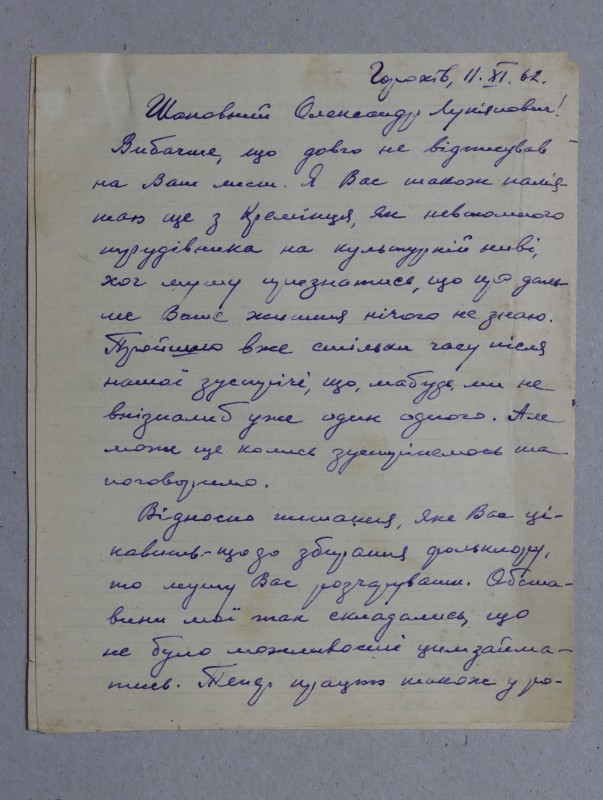 Горохів, 11. XI. 62.
Шановний Олександр Лукіянович!
Вибачте, що довго не відписував
на Ваш лист. Я Вас також памя-
таю ще з Кремінця, як невтомного
трудівника на культурній ниві,
хоч мушу признатись, що про даль-
ше Ваше життя нічого не знаю.
Пройшло вже стільки часу після
нашої зустрічі, що, мабуде, ми не
впізнали б уже один одного. Але
може ще колись зустрінемось та
поговоримо.
Відносно питання, яке Вас ці-
кавить - щодо збирання фольклору,
то мушу Вас розчарувати. Обста-
вини мої так складались, що
не було можливості цим займа-
тись. Тепер працюю також у ро-